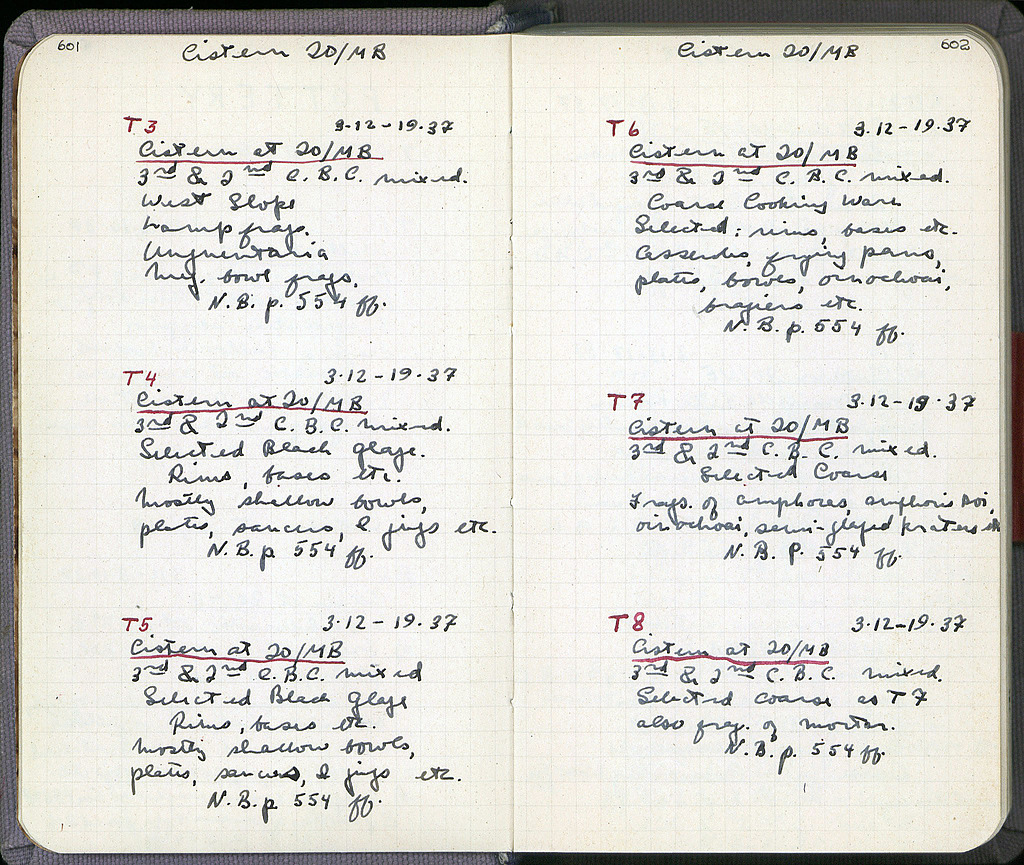 601
Cistern 20/MB
T3 3-12-19.37
Cistern at 20/MB
3rd & 2nd C.B.C. mixed.
West Slope
Lamp frags.
Unguentaria
Meg. bowl frags.
N.B. p. 554 ff.
T4 3.12-19.37
Cistern at 20/MB
3rd & 2nd C.B.C. mixed.
Selected Black glaze.
Rims, bases etc.
mostly shallow bowls,
plates, saucers, & jugs etc.
N.B. p 554 ff.
T5 3.12-19.37
Cistern at 20/MB
3rd & 2nd C.B.C. mixed
Selected Black glaze
Rims, bases etc.
mostly shallow bowls,
plates, saucers, & jugs etc.
N.B. p 554 ff.
602
Cistern 20/MB
T6 3.12-19.37
Cistern at 20/MB
3rd & 2nd C.B.C. mixed.
Coarse Cooking Ware
Selected: rims, bases etc.
Casseroles, frying pans,
plates, bowls, oinochoai,
braziers etc.
N.B. p. 554 ff.
T7 3.12-19.37
Cistern at 20/MB
3rd & 2nd C.B.C. mixed.
Selected Coarse
Frags. of amphoras,
oinochoai, semi-glazed kraters etc
N.B. P. 554 ff.
T8 3.12-19.37
Cistern at 20/MB
3rd & 2nd C.B.C. mixed.
Selected coarse as T7
also frag. of mortar.
N.B. p. 554 ff.